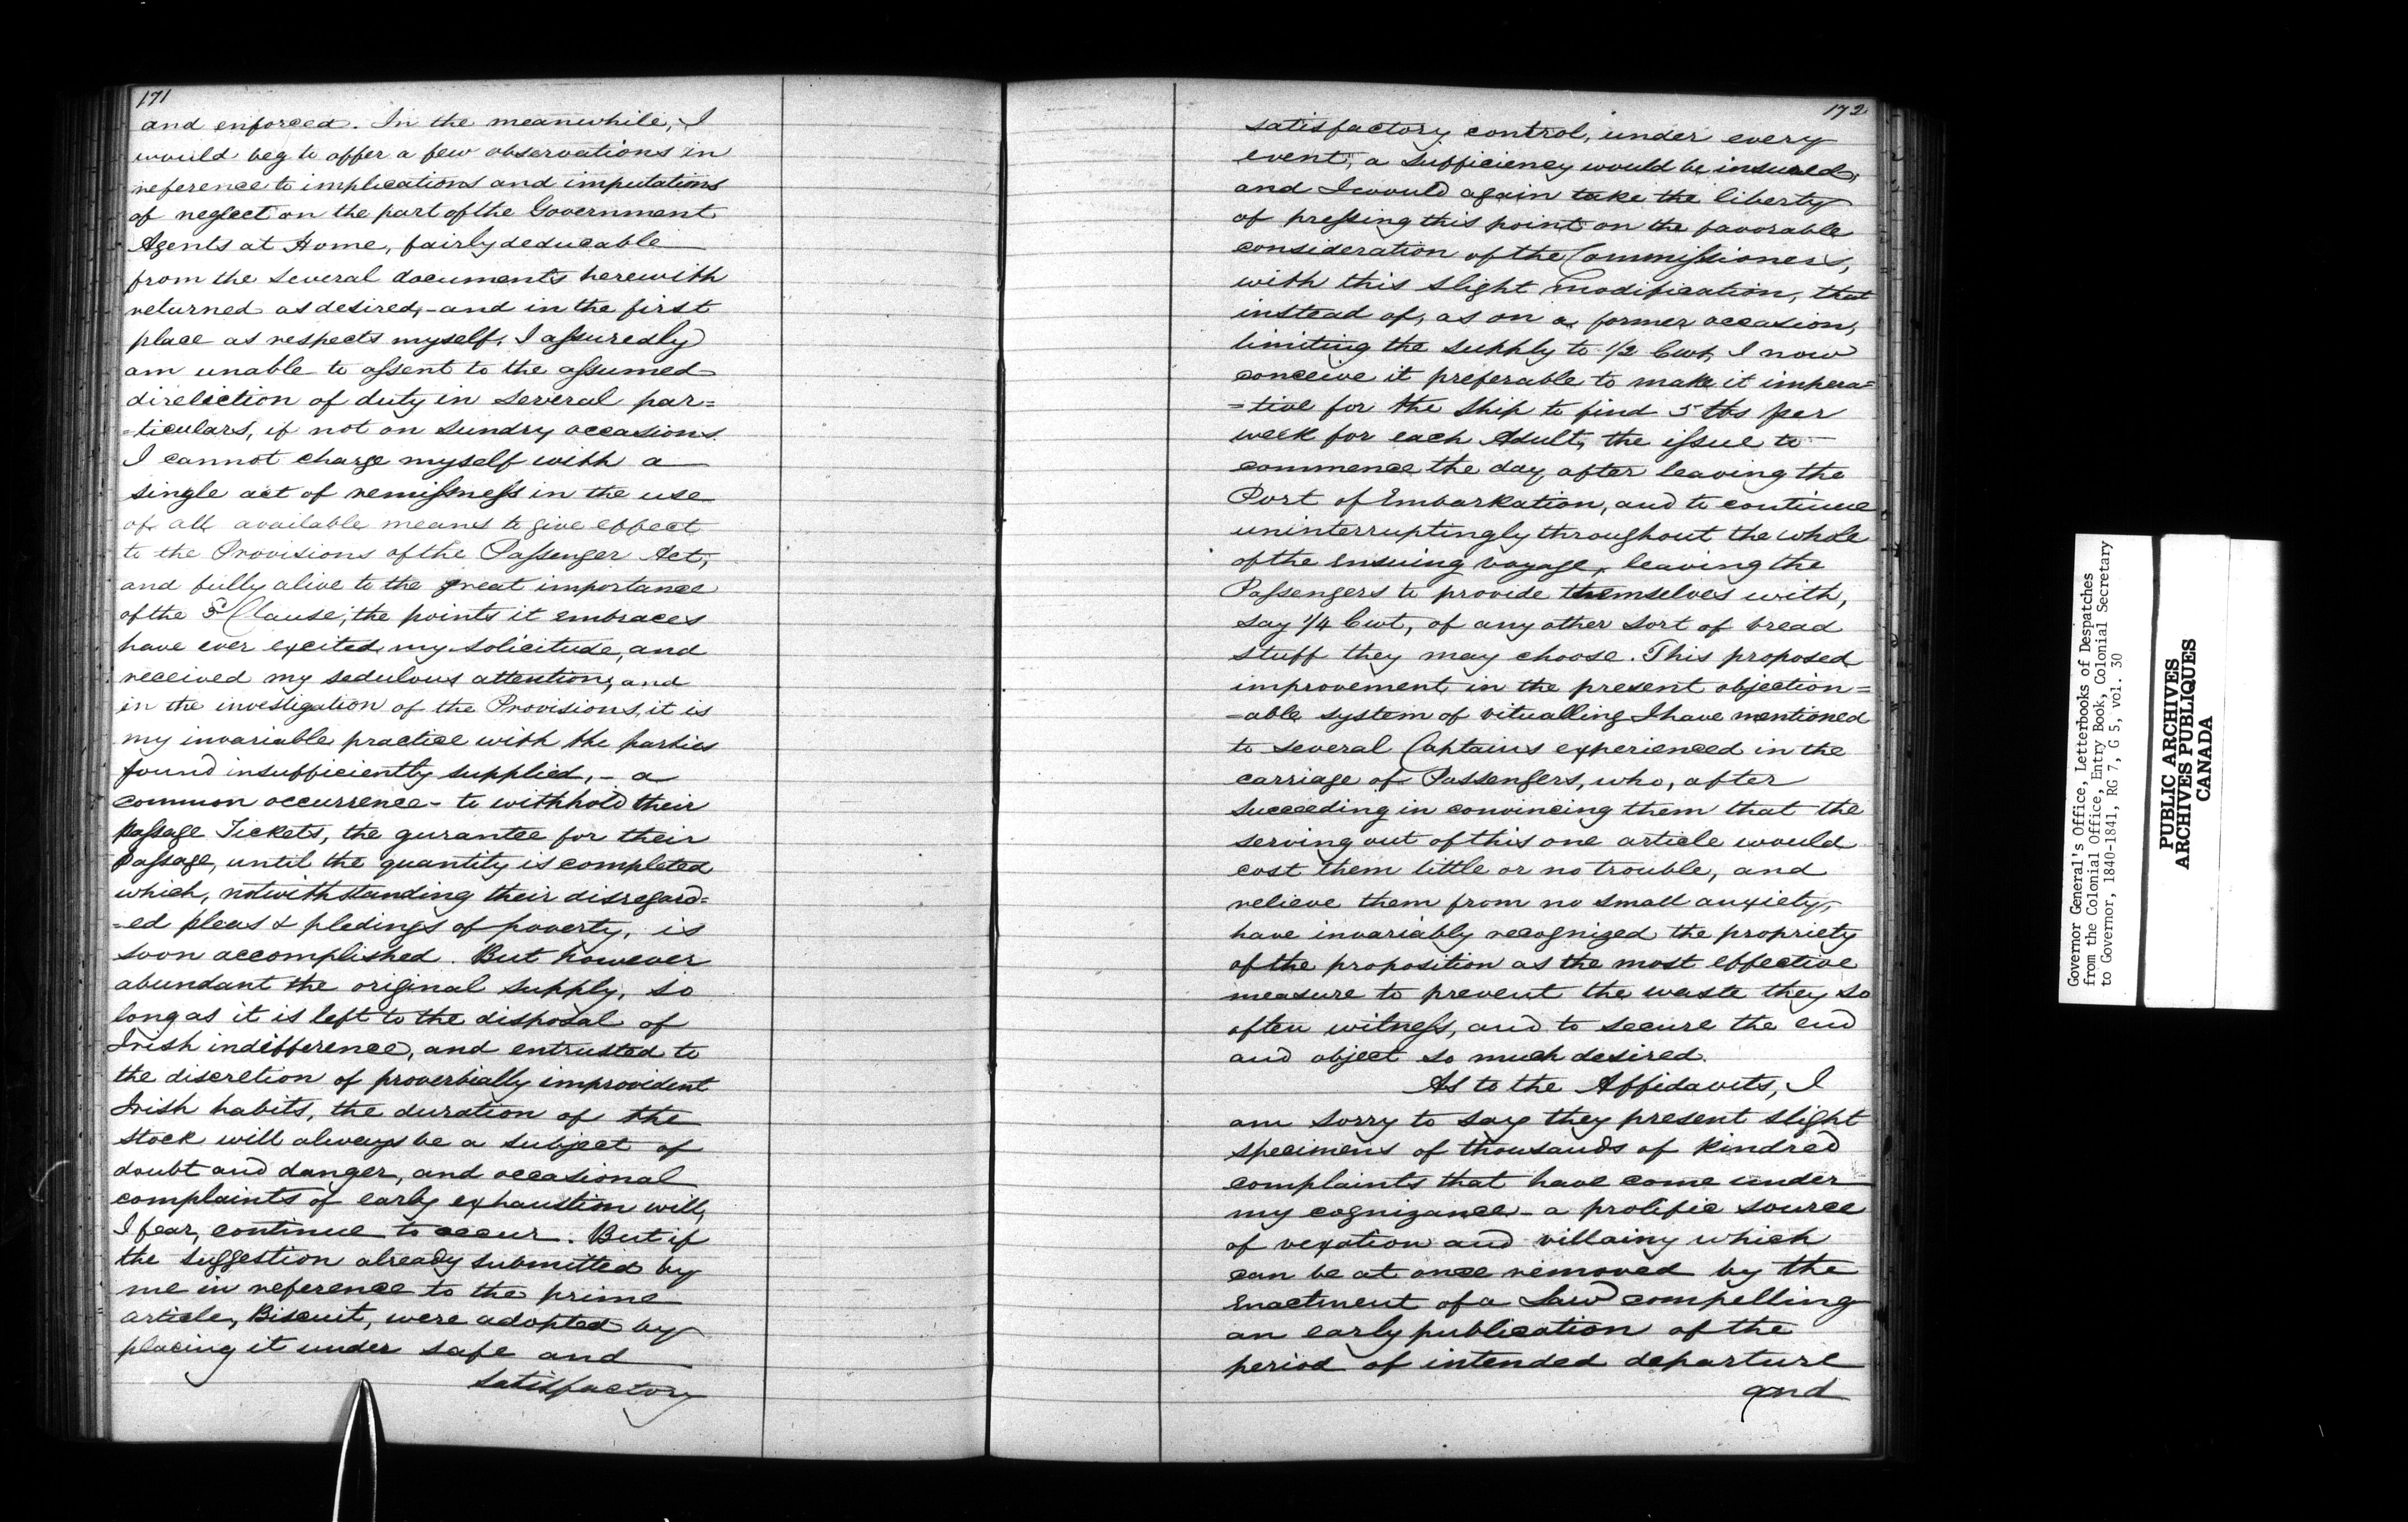 171
and enforced. In the meanwhile, I
would beg to offer a few observations in
reference to implications and imputations
of neglect on the part of the Government
Agents at Home, fairly deducable
from the several documents herewith
returned as desired, - and in the first
place as respects myself, I assuredly
am unable to assent to the assumed
direliction of duty in several par=
=ticulars, if not on sundry occasions.
I cannot charge myself with a
single act of remissness in the use
of all available means to give effect
to the Provisions of the Passenger Act,
and fully alive to the great importance
of the 3d Clause, the points it embraces
have ever excited my solicitude, and
received my sedulous attention, and
in the investigation of the Provisions, it is
my invariable practice with the parties
found insufficiently supplied, - a
common occurrence - to withhold their
Passage Tickets, the gurantee for their
Passage, until the quantity is completed
which, notwithstanding their disregard=
=ed pleas & pledings of poverty, is
soon accomplished. But however
abundant the original supply, so
long as it is left to the disposal of
Irish indifference, and entrusted to
the discretion of proverbially improvident
Irish habits, the duration of the
stock will always be a subject of
doubt and danger, and occasional
complaints of early exhaustion will,
I fear, continue to occur. But if
the suggestion already submitted by
me in reference to the prime
article, Biscuit, were adopted by
placing it under safe and
satisfactory
172
satisfactory control, under every
event, a sufficiency would be insured,
and I would again take the liberty
of pressing this point on the favorable
consideration of the Commissioners,
with this slight modification, that
instead of, as on a former occasion,
limiting the supply to 1/2 Cwt, I now
conceive it preferable to make it impera=
=tive for the ship to find 5 lbs per
week for each Adult, the issue to
commence the day after leaving the
Port of Embarkation, and to continue
uninterruptingly throughout the whole
of the ensuing voyage, leaving the
Passengers to provide themselves with,
say 1/4 Cwt, of any other sort of bread
stuff they may choose. This proposed
improvement in the present objection=
=able system of vitualling I have mentioned
to several Captains experienced in the
carriage of Passengers, who, after
succeeding in convincing them that the
serving out of this one article would
cost them little or no trouble, and
relieve them from no small anxiety,
have invariably recognized the propriety
of the proposition as the most effective
measure to prevent the waste they so
often witness, and to secure the end
and object so much desired.
As to the Affidavits, I
am sorry to say they present slight
specimens of thousands of kindred
complaints that have come under
my cognizance - a prolific source
of vexation and villainy which
can be at once removed by the
enactment of a Law compelling
an early publication of the
period of intended departure
and
Governor General's Office, Letterbooks of Despatches
from the Colonial Office, Entry Book, Colonial Secretary
to Governor, 1840-1841, RG 7, G 5, vol. 30
PUBLIC ARCHIVES
ARCHIVES PUBLIQUES
CANADA